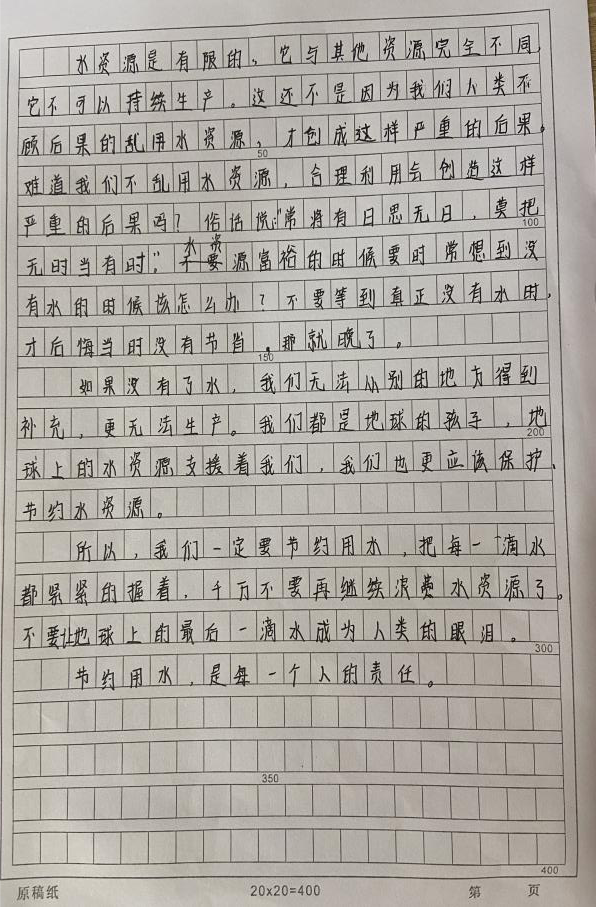 水资源是有限的，它与其他资源完全不同，
它不可以持续生产。这还不是因为我们人类不
顾后果的乱用水资源，才创成这样严重的后果。
50
难道我们不乱用水资源，合理利用会创造这样
严重的后果吗？俗话说：“常将有日思无日，莫把
100
水资
无时当有时。”不要源富裕的时候要时常想到没
有水的时候该怎么办？不要等到真正没有水时，
才后悔当时没有节省。那就晚了。
150
如果没有了水，我们无法从别的地方得到
补充，更无法生产。我们都是地球的孩子，地
200
球上的水资源支援着我们，我们也更应该保护、
节约水资源。
所以，我们一定要节约用水，把每一滴水
都紧紧的握着，千万不要再继续浪费水资源了。
不要让地球上的最后一滴水成为人类的眼泪。
300
节约用水，是每一个人的责任。
350
400
原稿纸 20x20=400 第 页